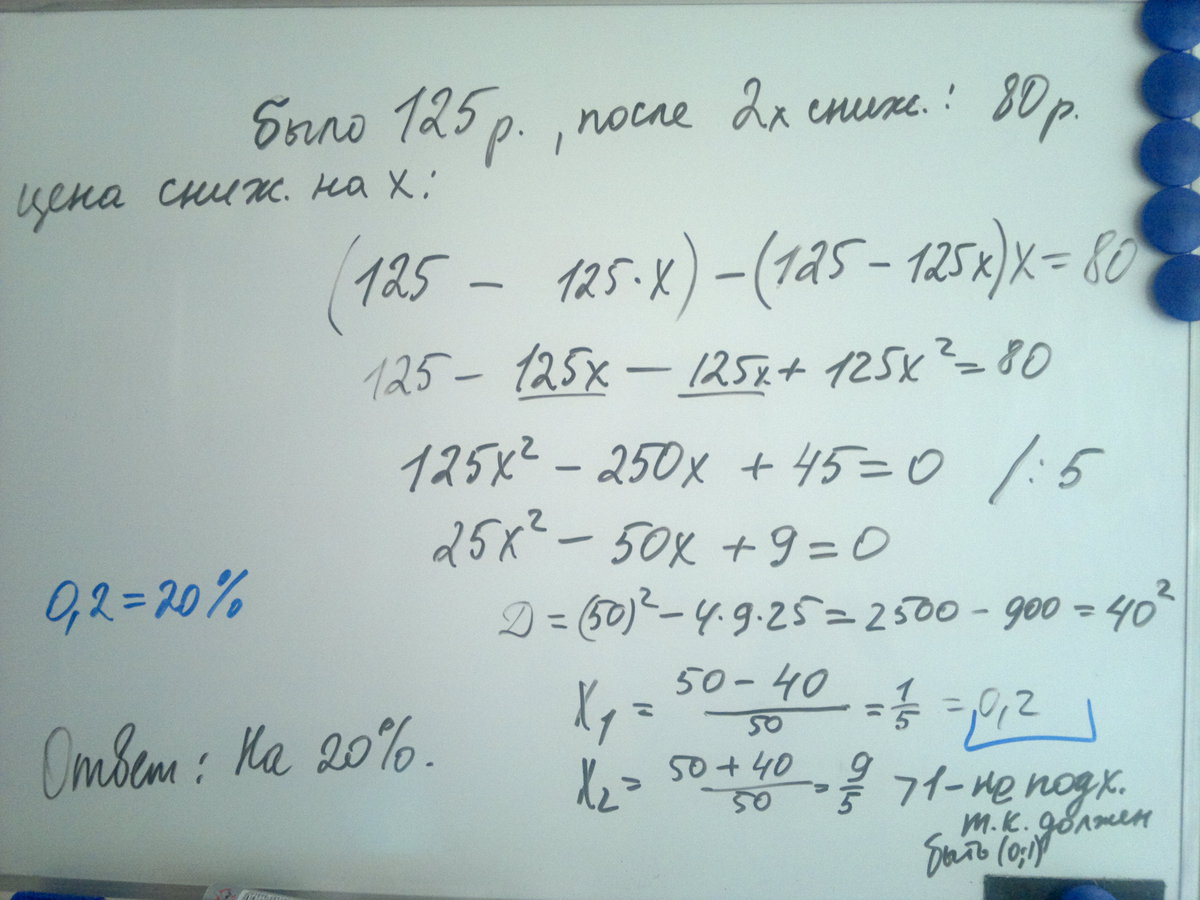 было 125р., после 2х сниж.: 80р.
цена сниж. на х:
(125 - 125·x) - (125 - 125x)x = 80
125 - 125x - 125x + 125x² = 80
125x² - 250x + 45 = 0 /:5
25x² - 50x + 9 = 0
0,2 = 20%
D = (50)² - 4·9·25 = 2500 - 900 = 40²
X₁ = (50 - 40)/50 = 1/5 = 0,2
Ответ: На 20%.
X₂ = (50 + 40)/50 = 9/5 >1 - не подх.
т.к. должен
быть (0;1)